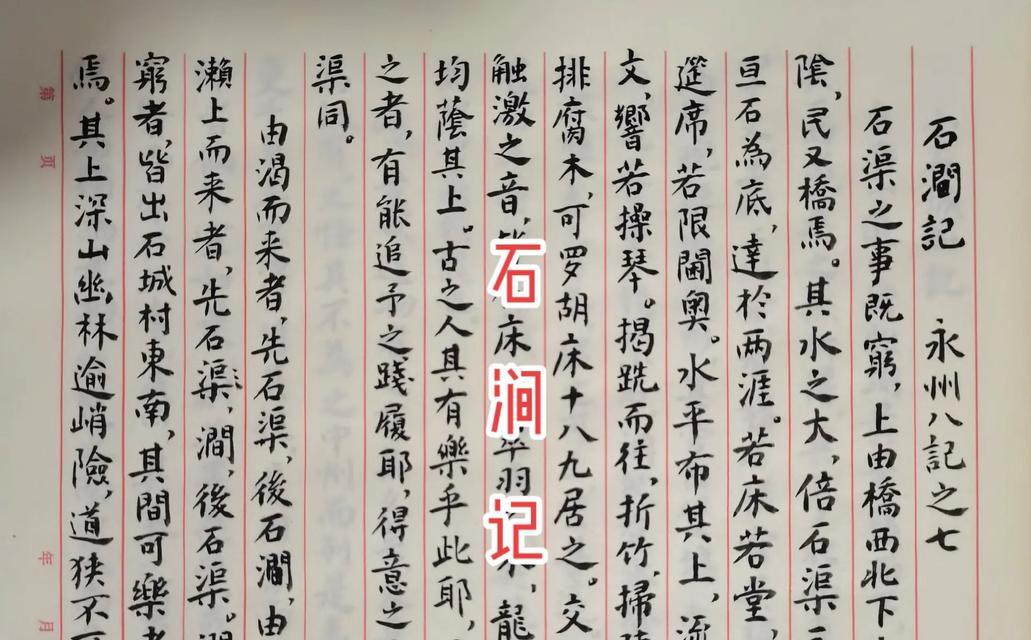 石澗記 永州八記之七
石渠之事既窮，上由橋西北下
陰，民又橋焉。其水之大，倍石渠
亘石為底，達於两涯。若床若堂，
筵席，若限閫奥。水平布其上，流
文，響若操琴。揭跣而往，折竹，掃
排腐木，可罗胡床十八九居之。交
触激之音，床羽木，龍
均蔭其上。古之人其有樂乎此耶，
之者，有能追予之踐履耶，得意之
渠同。
由渴而来者，先石渠，後石澗，由
瀨上而来者，先石渠，澗，後石渠。
窮者，皆出石城村東南，其間可樂者
焉。其上深山幽林逾峭險，道狭不
第 页 年 月
石涧记